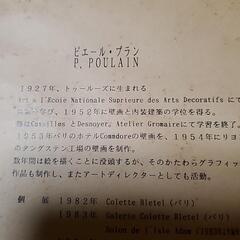 ピエール・プラン
P. POULAIN
1927年、トゥールーズに生まれる
Art a l'Ecole Nationale Suprieure des Arts Decoratifs にて
び、1952年に壁画と内装建築の学位を得る。
Desnoyer, Atelier Gromaireにて学習を終了
1953年パリのホテルCommdoreの壁画を、1954年にリヨ
のタングステン工場の壁画を制作。
数年間は絵を描くことに没頭するが、そのかたわらグラフィッ
作品も制作し、またアートディレクターとしても活動。
個 展 1982年 Colette Bletel (パリ)
1983年 Galerie Colette Bletel (パリ)
Salon de l'Isle Adam